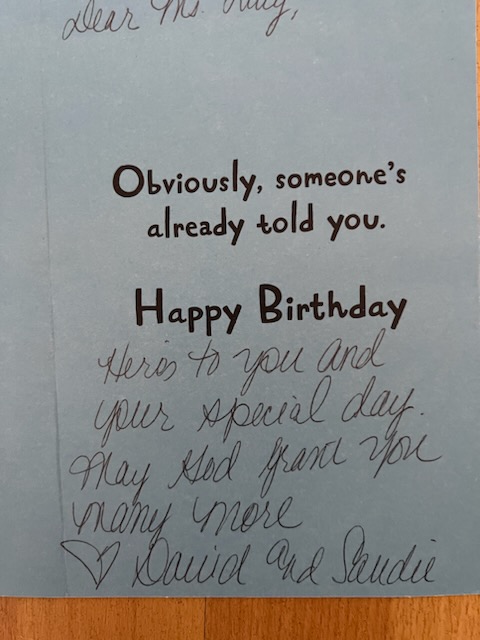 Dear Ms.
Obviously, someone's
already told you.
Happy Birthday
Here's to you and
your special day.
May God grant you
many more
♡ David and Sandie